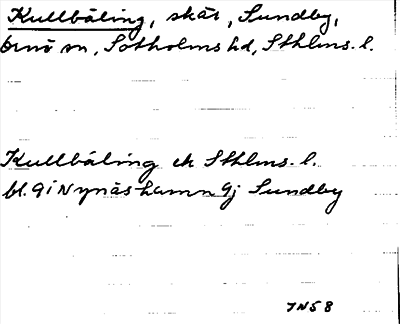 Kullbåling, skär, Sundby,
Ornö sn, Sotholms hd, Sthlms. l.
Kullbåling ek Sthlms. l.
bl. 9i Nynäshamn 9j Sundby
JN58